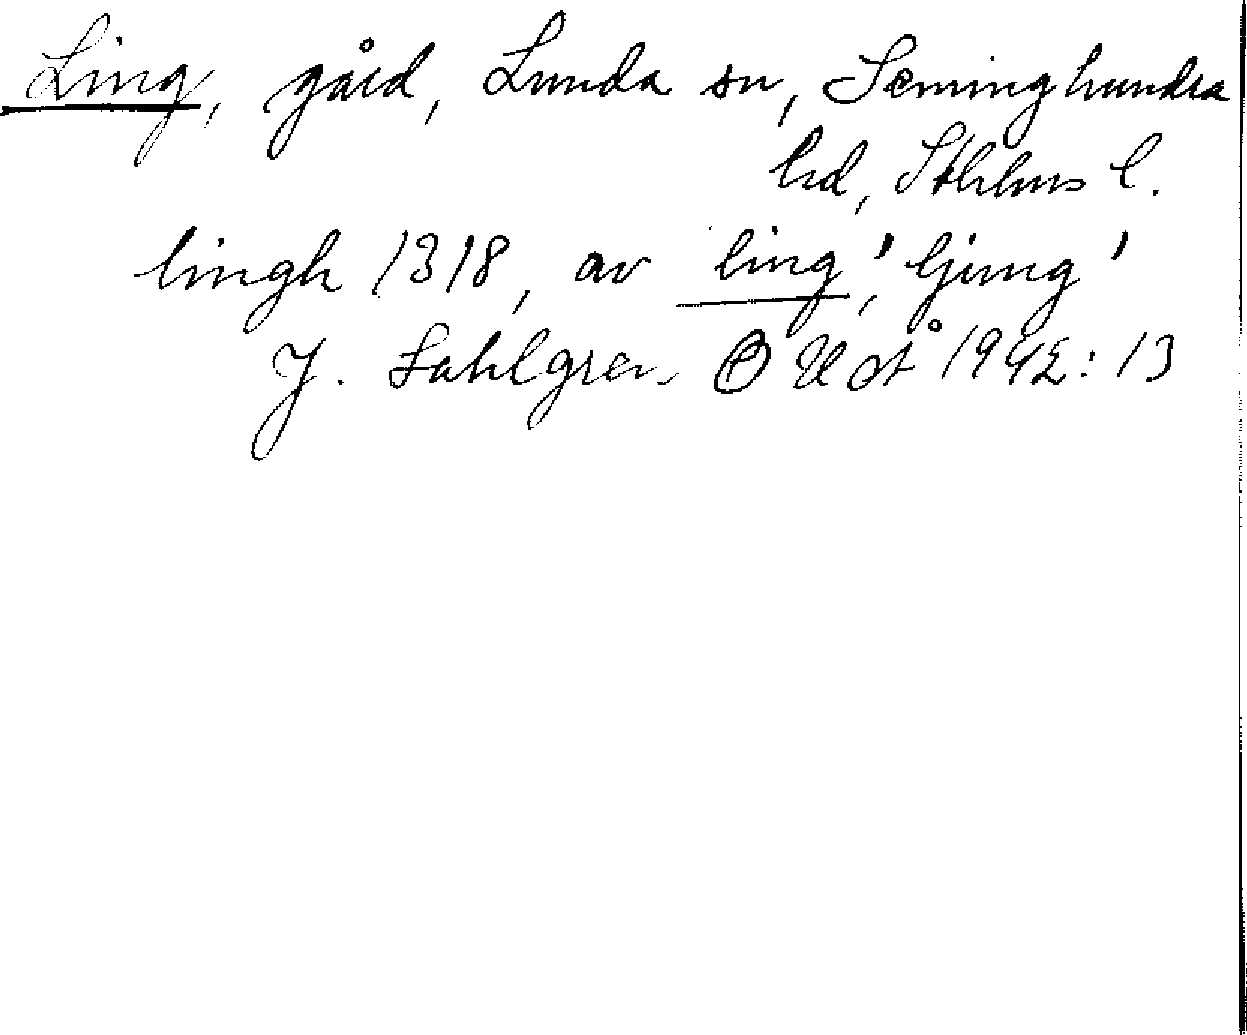 Ling, gård, Lunda sn, Seminghundra
hd, Sthlms l.
lingh 1318, av ling, 'ljung'
J. Sahlgren OUÅ 1942:13